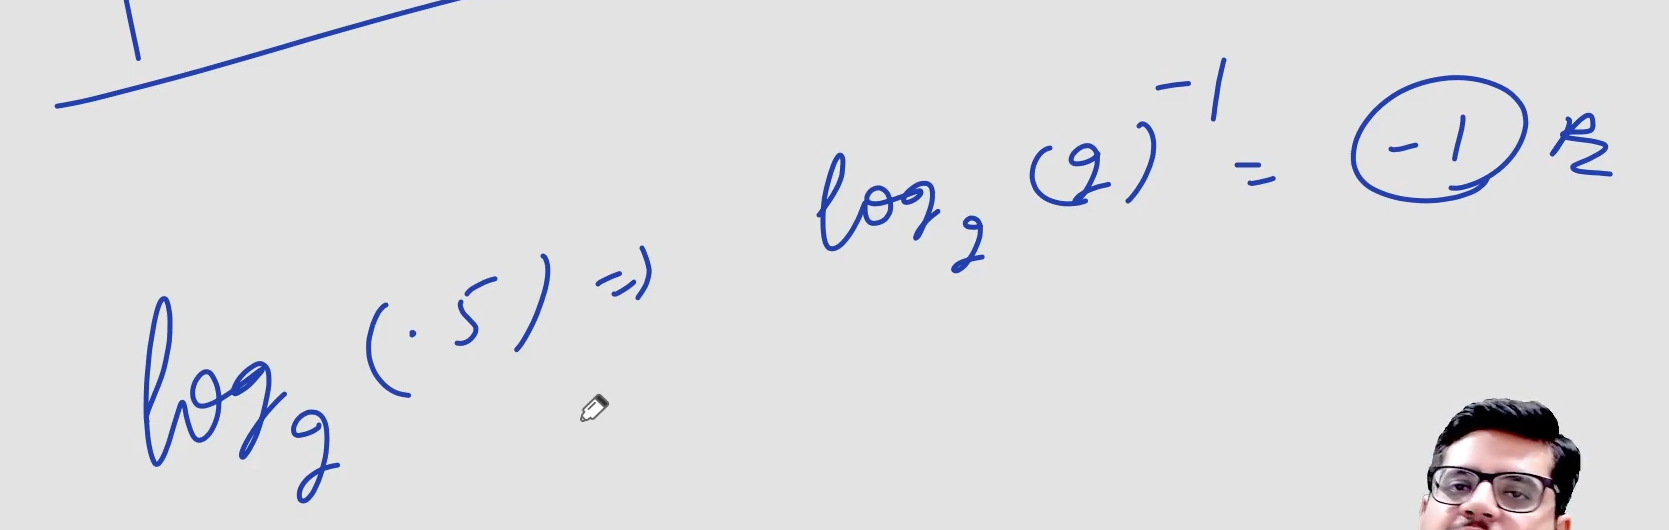 log₂(.5) ⇒ log₂(2)⁻¹ = -1